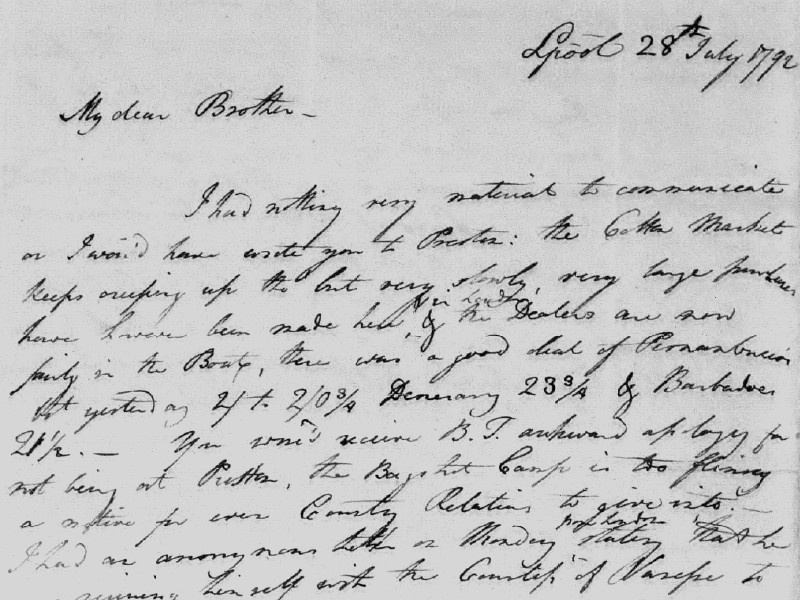 Lpool 28th July 1792
My dear Brother —
I had nothing very material to communicate
or I wou'd have wrote you to Preston: the Cotton Market
keeps creeping up tho but very slowly, very large purchases
have however been made here, & in London & the Dealers are now
fairly in the Boat, there was a good deal of Pernambucco
yesterday 2/ to 2/0 3/4 Demerary 23 3/4 & Barbadoes
21 1/2. — You wou'd receive B. T. awkward apology for
not being at Preston, the Bagshot Camp is too flimsy
a motive for even Country Relations to give into. —
I had an anonymous letter on Monday from London stating that he
himself with the Countess of to